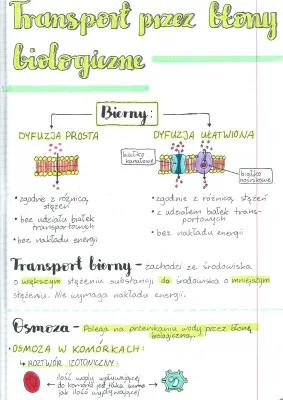 Transport przez błony
biologiczne
Bierny:
DYFUZJA PROSTA
DYFUZJA UŁATWIONA
białko
kanałowe
białko
nośnikowe
• zgodnie z różnicą
stężeń
• bez udziału białek
transportowych
• bez nakładu energii
• zgodnie z różnicą
stężeń
• z udziałem białek trans-
portowych
• bez nakładu energii
Transport bierny - zachodzi ze środowiska
o większym stężeniu substancji do środowiska o mniejszym
stężeniu. Nie wymaga nakładu energii.
Osmoza - Polega na przenikaniu wody przez błonę
biologiczną.
• OSMOZA W KOMÓRKACH:
↳ ROZTWÓR IZOTONICZNY:
ilość wody wpływającej
do komórki jest taka sama
jak ilość wypływającej